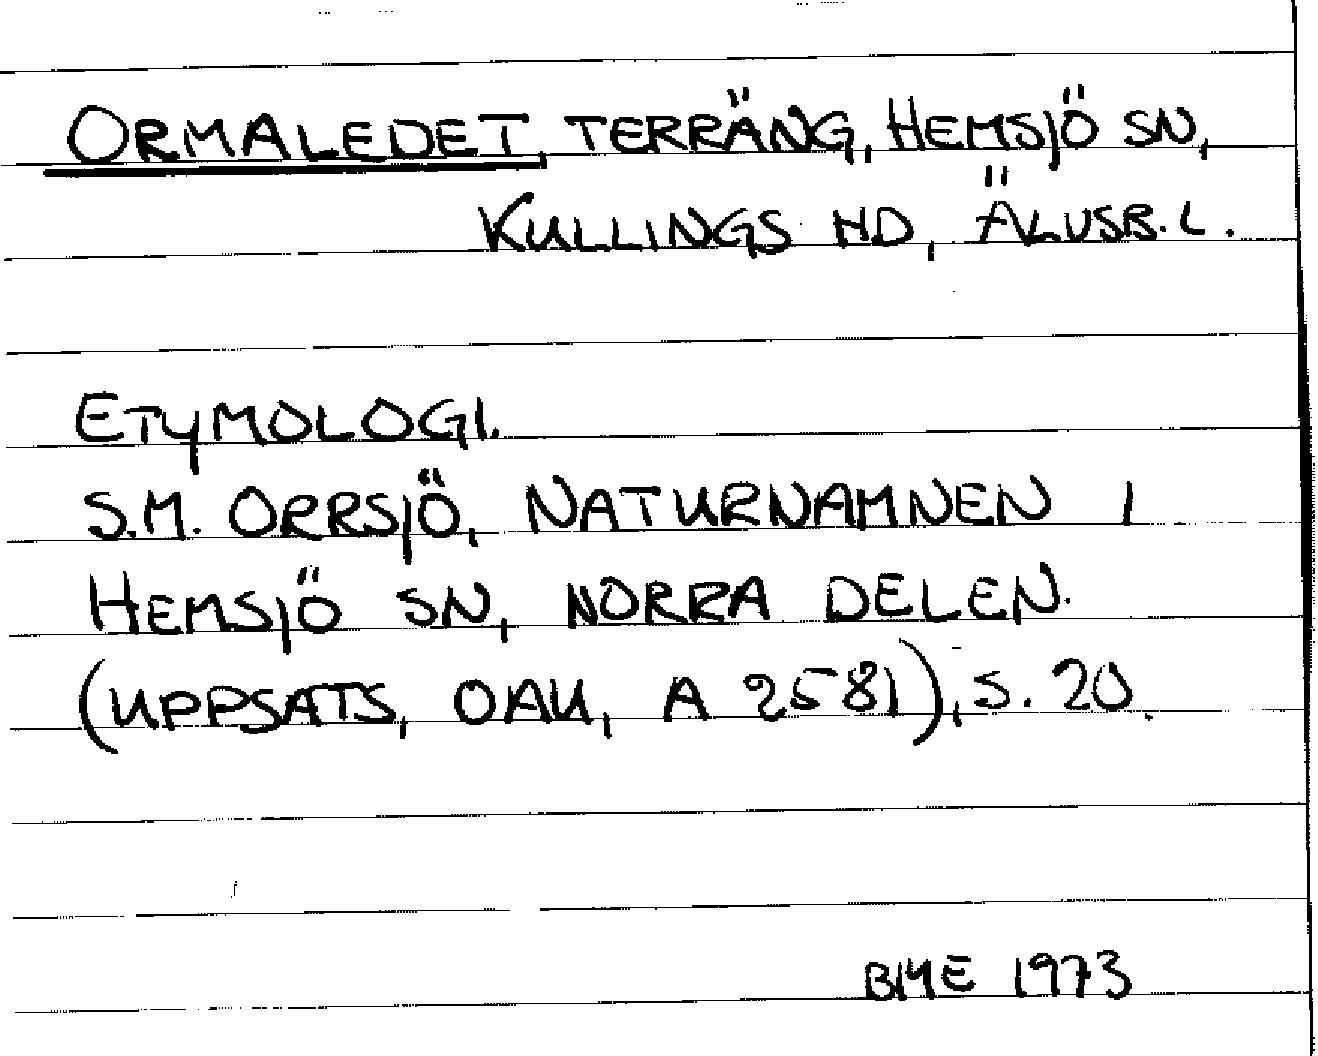 ORMALEDET, TERRÄNG, HEMSJÖ SN,
KULLINGS HD, ÄLVSB. L.
ETYMOLOGI.
S.M. ORRSJÖ, NATURNAMNEN I
HEMSJÖ SN, NORRA DELEN.
(UPPSATS, OAU, A 2581), S. 20.
BME 1973